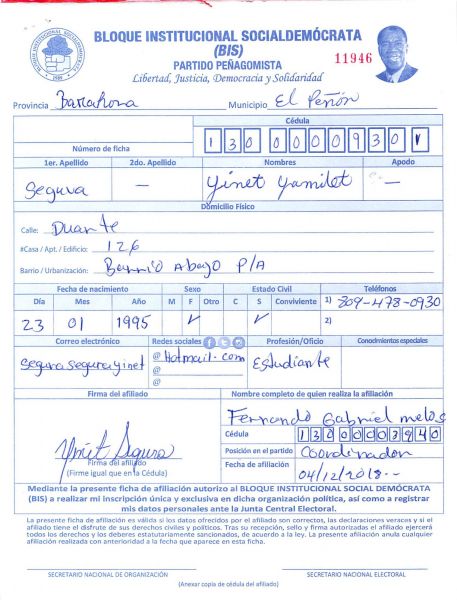 BLOQUE INSTITUCIONAL SOCIALDEMÓCRATA
(BIS)
PARTIDO PEÑAGOMISTA
11946
Libertad, Justicia, Democracia y Solidaridad
Provincia Barahona Municipio El Peñón
Cédula
Número de ficha 130 0000930
1er. Apellido 2do. Apellido Nombres Apodo
Segura — Yinet Yamilet —
Domicilio Físico
Calle: Duarte
#Casa / Apt. / Edificio: 126
Barrio / Urbanización: Barrio Abajo P/A
Fecha de nacimiento Sexo Estado Civil Teléfonos
Día Mes Año M F Otro C S Conviviente 1) 809-478-0930
23 01 1995 ✓ ✓ 2)
Correo electrónico Redes sociales Profesión/Oficio Conocimientos especiales
segurasegurayinet @Hotmail.com Estudiante
@
@
Firma del afiliado Nombre completo de quien realiza la afiliación
Fernando Gabriel
Cédula 13000003940
Yinet Segura
Posición en el partido Coordinador
Firma del afiliado
(Firme igual que en la Cédula)
Fecha de afiliación 04/12/2018--
Mediante la presente ficha de afiliación autorizo al BLOQUE INSTITUCIONAL SOCIAL DEMÓCRATA
(BIS) a realizar mi inscripción única y exclusiva en dicha organización política, así como a registrar
mis datos personales ante la Junta Central Electoral.
La presente ficha de afiliación es válida si los datos ofrecidos por el afiliado son correctos, las declaraciones veraces y si el
afiliado tiene el disfrute de sus derechos civiles y políticos. Tras su recepción, sello y firma autorizados el afiliado ejercerá
todos los derechos y los deberes estatutariamente sancionados, de acuerdo a la ley. La presente afiliación anula cualquier
afiliación realizada con anterioridad a la fecha que aparece en esta ficha.
SECRETARIO NACIONAL DE ORGANIZACIÓN SECRETARIO NACIONAL ELECTORAL
(Anexar copia de cédula del afiliado)